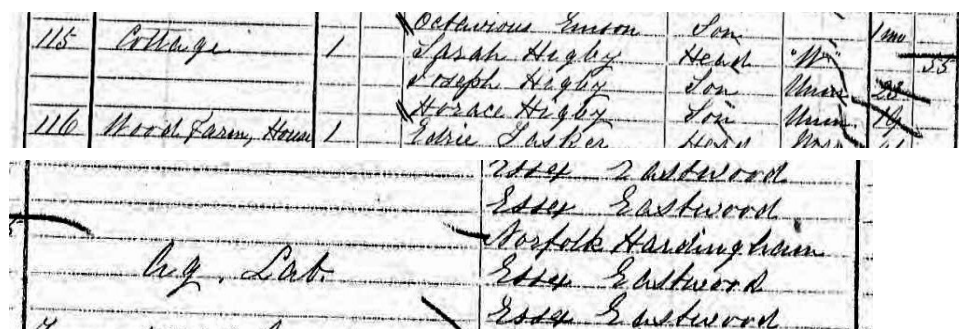 Octavious Emson Son 1 mo
115 Cottage 1 Sarah Higby Head "W" 55
Joseph Higby Son Unm 28
Horace Higby Son Unm 19
116 Wood Farm, House 1 Edric Tasker Head
Essex Eastwood
Essex Eastwood
Norfolk Hardingham
Ag. Lab. Essex Eastwood
Essex Eastwood